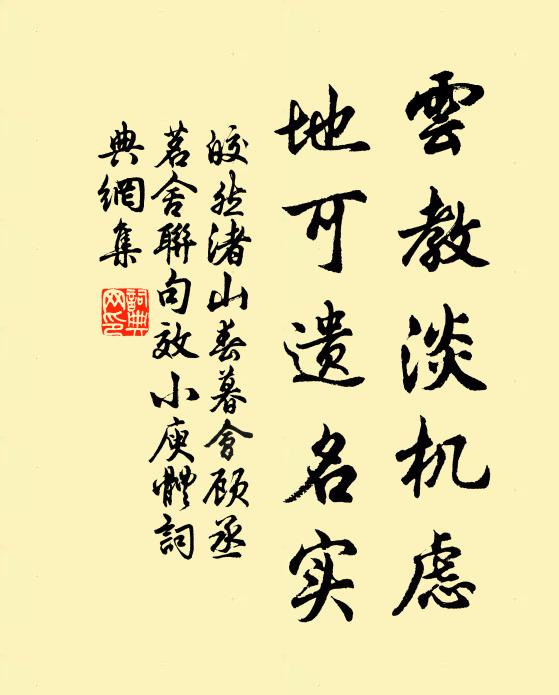 雲教淡机慮
地可遺名实
皎然渚山春暮會顾丞
茗舍聯句效小庾體詞
典網集
詞典
网印